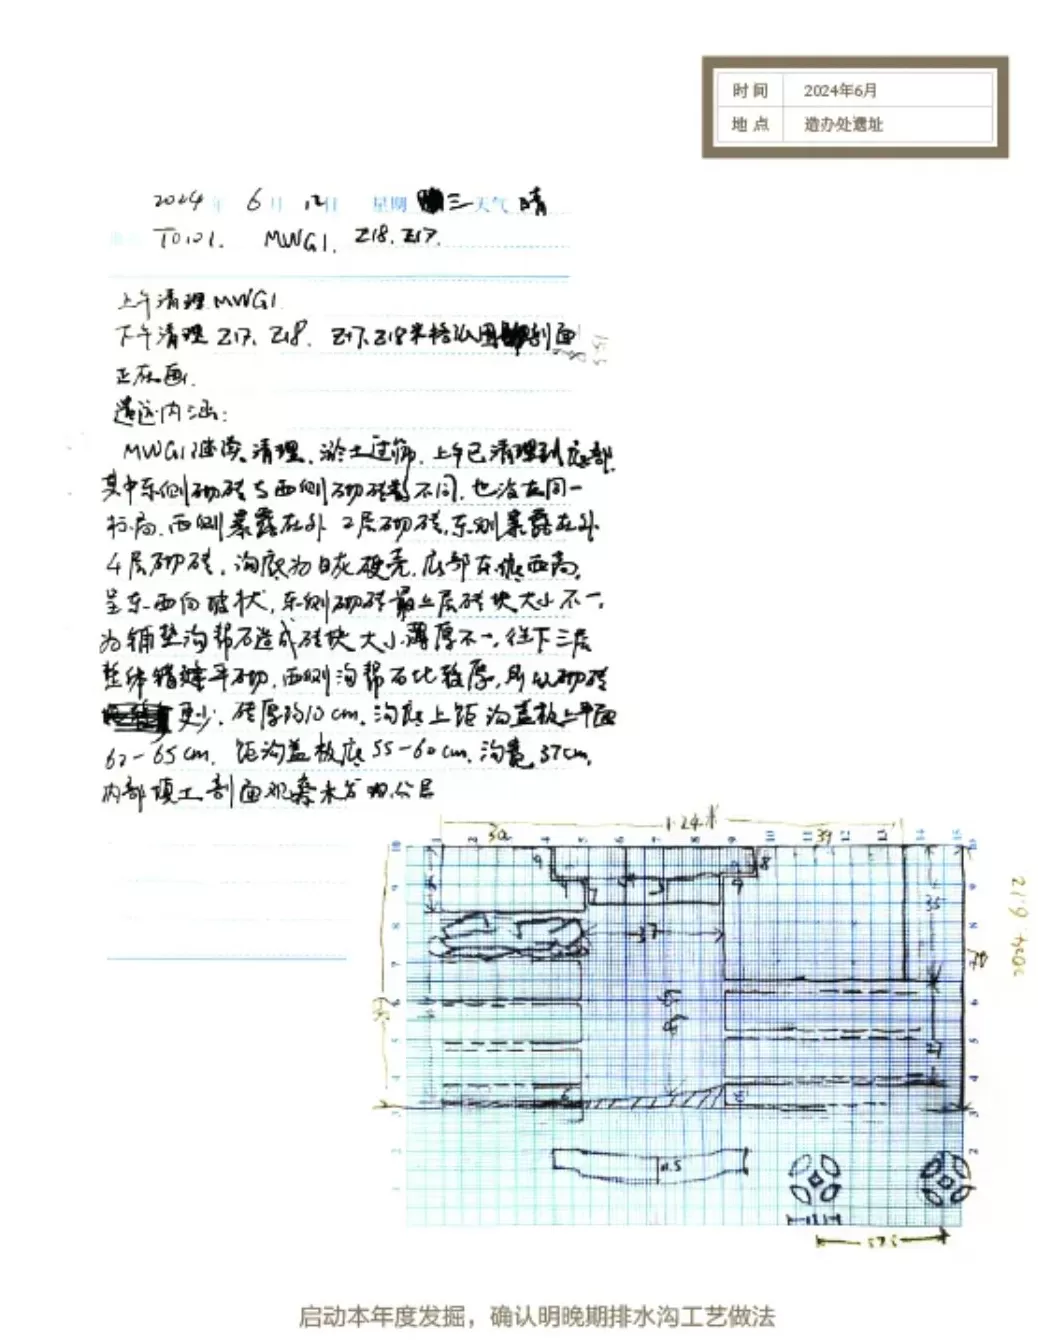 时间 2024年6月
地点 造办处遗址
2024年 6月 12日 星期三 天气 晴
T0101. MWG1. Z18. Z17.
上午清理MWG1.
下午清理Z17、Z18. Z17、Z18 剖面
正在画.
遗迹内涵:
MWG1继续清理、淤土过筛. 上午已清理到底部.
其中东侧砌砖与西侧砌砖数不同, 也没在同一
标高. 西侧暴露在外2层砌砖, 东侧暴露在外
4层砌砖, 沟底为白灰硬壳. 底部东低西高,
呈东西向坡状, 东侧砌砖最上层砖块大小不一,
为铺垫沟帮石造成砖块大小薄厚不一, 往下三层
整体错缝平砌. 西侧沟帮石比较厚, 所以砌砖
更少. 砖厚约10cm. 沟底上距沟盖板上平面
62-65cm. 距沟盖板底55-60cm. 沟宽37cm.
内部填土剖面观察未分层
1.24米
30
39
37
35
70
57.5
2024.6.12
启动本年度发掘，确认明晚期排水沟工艺做法